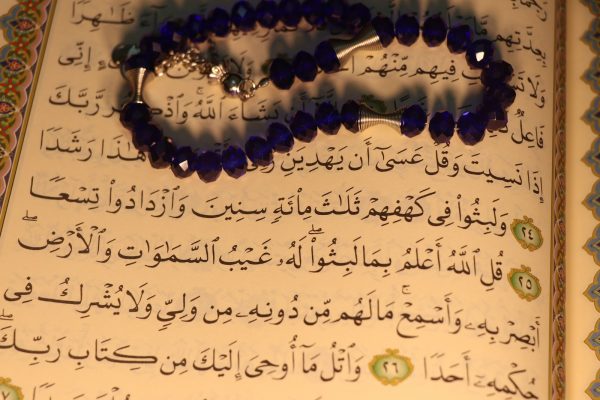 ظَٰهِرًا
فِيهِم مِّنْهُمْ إِنِّي
فَاعِلٌ أَن يَشَآءَ ٱللَّهُ وَٱذْكُر رَّبَّكَ
إِذَا نَسِيتَ وَقُلْ عَسَىٰٓ أَن يَهْدِيَنِ هَٰذَا رَشَدًا
٢٤ وَلَبِثُوا۟ فِى كَهْفِهِمْ ثَلَٰثَ مِا۟ئَةٍ سِنِينَ وَٱزْدَادُوا۟ تِسْعًا
٢٥ قُلِ ٱللَّهُ أَعْلَمُ بِمَا لَبِثُوا۟ۖ لَهُۥ غَيْبُ ٱلسَّمَٰوَٰتِ وَٱلْأَرْضِۖ
أَبْصِرْ بِهِۦ وَأَسْمِعْۚ مَا لَهُم مِّن دُونِهِۦ مِن وَلِىٍّ وَلَا يُشْرِكُ فِى
حُكْمِهِۦٓ أَحَدًا ٢٦ وَٱتْلُ مَآ أُوحِىَ إِلَيْكَ مِن كِتَابِ رَبِّكَۖ